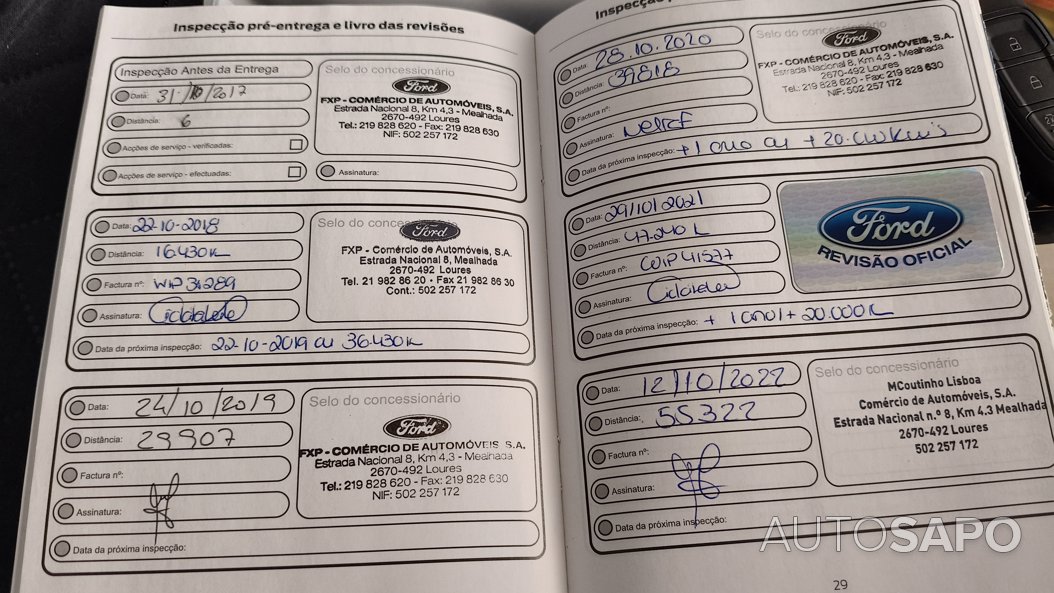 Inspecção pré-entrega e livro das revisões
Inspecção Antes da Entrega
Data: 31/10/2017
Distância: 6
Acções de serviço - verificadas:
Acções de serviço - efectuadas:
Selo do concessionário
Ford
FXP - COMÉRCIO DE AUTOMÓVEIS, S.A.
Estrada Nacional 8, Km 4,3 - Mealhada
2670-492 Loures
Tel.: 219 828 620 - Fax: 219 828 630
NIF: 502 257 172
Assinatura:
Data: 22-10-2018
Distância: 16.430K
Factura nº: WIP 31289
Assinatura:
Data da próxima inspecção: 22-10-2019 ou 36.430K
Selo do concessionário
Ford
FXP - Comércio de Automóveis, S.A.
Estrada Nacional 8, Mealhada
2670-492 Loures
Tel. 21 982 86 20 - Fax 21 982 86 30
Cont.: 502 257 172
Data: 24/10/2019
Distância: 29907
Factura nº:
Assinatura:
Data da próxima inspecção:
Selo do concessionário
Ford
FXP - COMÉRCIO DE AUTOMÓVEIS, S.A.
Estrada Nacional 8, Km 4,3 - Mealhada
2670-492 Loures
Tel.: 219 828 620 - Fax: 219 828 630
NIF: 502 257 172
Inspecção
Data: 28.10.2020
Distância: 39818
Factura nº:
Assinatura:
Data da próxima inspecção: +1 ano ou +20.000 Km's
Selo do concessionário
Ford
FXP - COMÉRCIO DE AUTOMÓVEIS, S.A.
Estrada Nacional 8, Km 4,3 - Mealhada
2670-492 Loures
Tel.: 219 828 620 - Fax: 219 828 630
NIF: 502 257 172
Data: 29/10/2021
Distância: 47.240K
Factura nº: WIP 41577
Assinatura:
Data da próxima inspecção: + 1 ano / + 20.000K
Ford
REVISÃO OFICIAL
Data: 12/10/2022
Distância: 55322
Factura nº:
Assinatura:
Data da próxima inspecção:
Selo do concessionário
MCoutinho Lisboa
Comércio de Automóveis, S.A.
Estrada Nacional n.º 8, Km 4.3 Mealhada
2670-492 Loures
502 257 172
29
AUTOSAPO